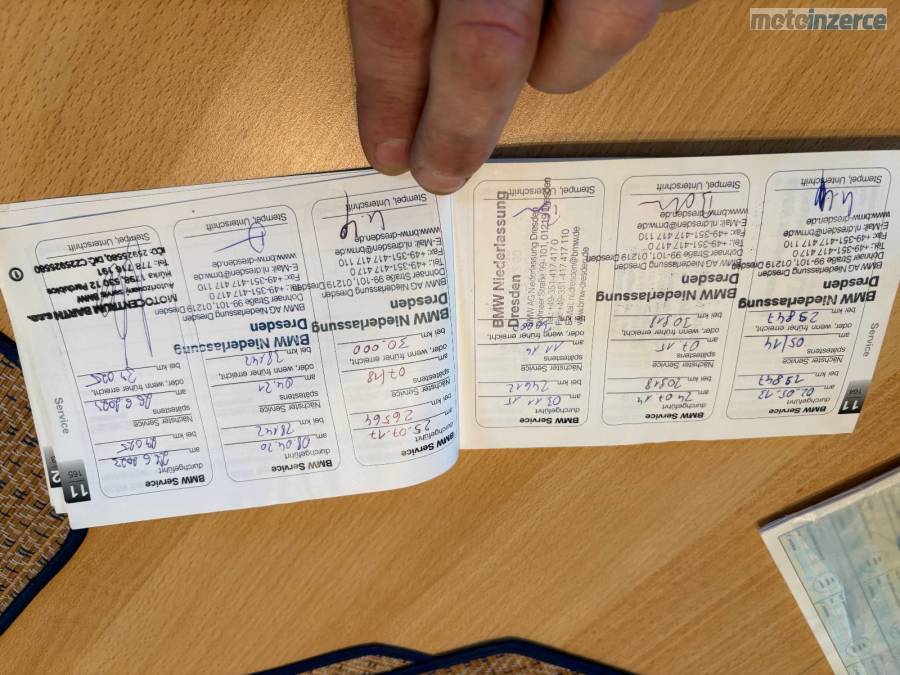 motoinzerce
11
164
Service
BMW Service
durchgeführt
am 02.05.12
bei km 19847
Nächster Service
spätestens
am 05/14
oder, wenn früher erreicht,
bei km 29847
BMW Niederlassung
Dresden
BMW AG Niederlassung Dresden
Dohnaer Straße 99-101, 01219 Dresden
Tel.: +49-351-417 41 70
Fax: +49-351-417 417 110
E-Mail: nl.dresden@bmw.de
www.bmw-dresden.de
Stempel, Unterschrift
BMW Service
durchgeführt
am 24.07.14
bei km 20818
Nächster Service
spätestens
am 07.15
oder, wenn früher erreicht,
bei km 30818
BMW Niederlassung
Dresden
BMW AG Niederlassung Dresden
Dohnaer Straße 99-101, 01219 Dresden
Tel.: +49-351-417 41 70
Fax: +49-351-417 417 110
E-Mail: nl.dresden@bmw.de
www.bmw-dresden.de
Stempel, Unterschrift
BMW Service
durchgeführt
am 03.11.15
bei km 24612
Nächster Service
spätestens
oder, wenn früher erreicht,
BMW Niederlassung
Dresden
BMW AG Niederlassung Dresden
Dohnaer Straße 99-101, 01219 Dresden
Tel.: +49-351-417 417 0
Fax: +49-351-417 417 110
E-Mail: nl.dresden@bmw.de
www.bmw-dresden.de
Stempel, Unterschrift
11
165
Service
BMW Service
durchgeführt
am 25.07.17
bei km 26564
Nächster Service
spätestens
am 07/18
oder, wenn früher erreicht,
bei km 30.000
BMW Niederlassung
Dresden
BMW AG Niederlassung Dresden
Dohnaer Straße 99-101, 01219 Dresden
Tel.: +49-351-417 41 70
Fax: +49-351-417 417 110
E-Mail: nl.dresden@bmw.de
www.bmw-dresden.de
Stempel, Unterschrift
BMW Service
durchgeführt
am 08.04.20
bei km 28142
Nächster Service
spätestens
am 04.21
oder, wenn früher erreicht,
bei km 38142
BMW Niederlassung
Dresden
BMW AG Niederlassung Dresden
Dohnaer Straße 99-101, 01219 Dresden
Tel.: +49-351-417 41 70
Fax: +49-351-417 417 110
E-Mail: nl.dresden@bmw.de
www.bmw-dresden.de
Stempel, Unterschrift
BMW Service
durchgeführt
am
bei km
Nächster Service
spätestens
am
oder, wenn früher erreicht,
bei km
MOTOCENTRUM BARTH s.r.o.
Autorizovaný servis BMW
Tel.: 778 716 191
Stempel, Unterschrift
2